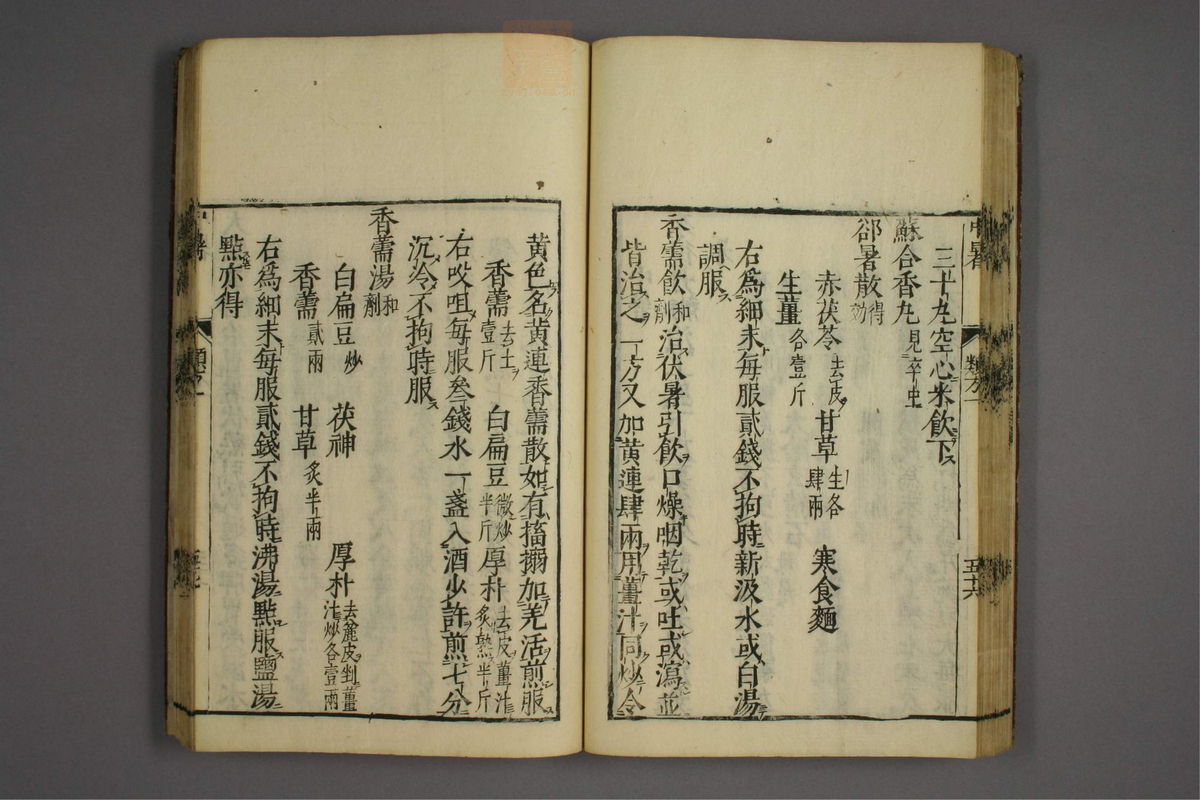 三十丸空心米飲下
蘇合香丸 見卒中
郤暑散 得効
赤茯苓 去皮 甘草 生各肆兩 寒食麵
生薑 各壹斤
右爲細末每服貳錢不拘時新汲水或白湯
調服
香薷飲 和劑 治伏暑引飲口燥咽乾或吐或瀉並
皆治之一方又加黃連肆兩用薑汁同炒令
黃色名黃連香薷散如有搐搦加羌活煎服
香薷 去土壹斤 白扁豆 微炒半斤 厚朴 去皮薑汁炙熟半斤
右㕮咀每服叁錢水一盞入酒少許煎七分
沉冷不拘時服
香薷湯 和劑
白扁豆 炒 茯神 厚朴 去麄皮剉薑汁炒各壹兩
香薷 貳兩 甘草 炙半兩
右爲細末每服貳錢不拘時沸湯點服鹽湯
點亦得